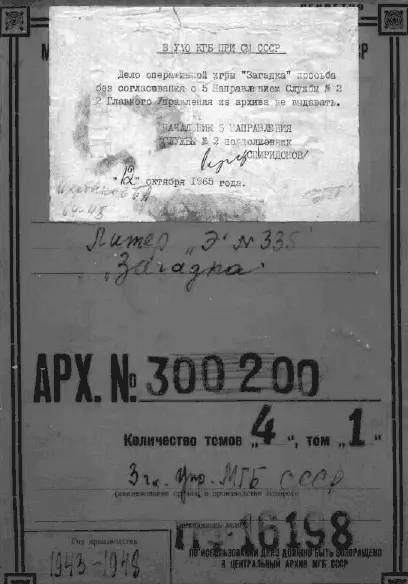 В УАО КГБ ПРИ СМ СССР
Дело оперативной игры "Загадка" просьба
без согласования с 5 Направлением Службы № 2
2 Главного Управления из архива не выдавать.
НАЧАЛЬНИК 5 НАПРАВЛЕНИЯ
СЛУЖБЫ № 2 подполковник
(СПИРИДОНОВ)
"12" октября 1965 года.
Литер „Э" № 335
„Загадка"
АРХ. № 300200
Количество томов „4", том „1"
3 гл. Упр. МГБ СССР
(наименование органа, в производстве которого
находилось дело)
П-16198
Год производства
1943-1948
ПО ИСПОЛЬЗОВАНИИ ДЕЛО ДОЛЖНО БЫТЬ ВОЗВРАЩЕНО
В ЦЕНТРАЛЬНЫЙ АРХИВ МГБ СССР